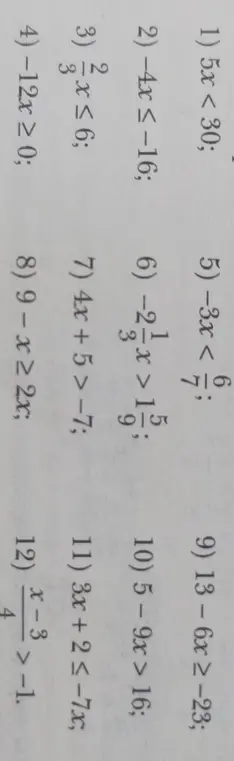 1) 5x < 30;
2) −4x ≤ −16;
3) 2/3 x ≤ 6;
4) −12x ≥ 0;
5) −3x < 6/7;
6) −2 1/3 x > 1 5/9;
7) 4x + 5 > −7;
8) 9 − x ≥ 2x;
9) 13 − 6x ≥ −23;
10) 5 − 9x > 16;
11) 3x + 2 ≤ −7x;
12) (x − 3)/4 > −1.